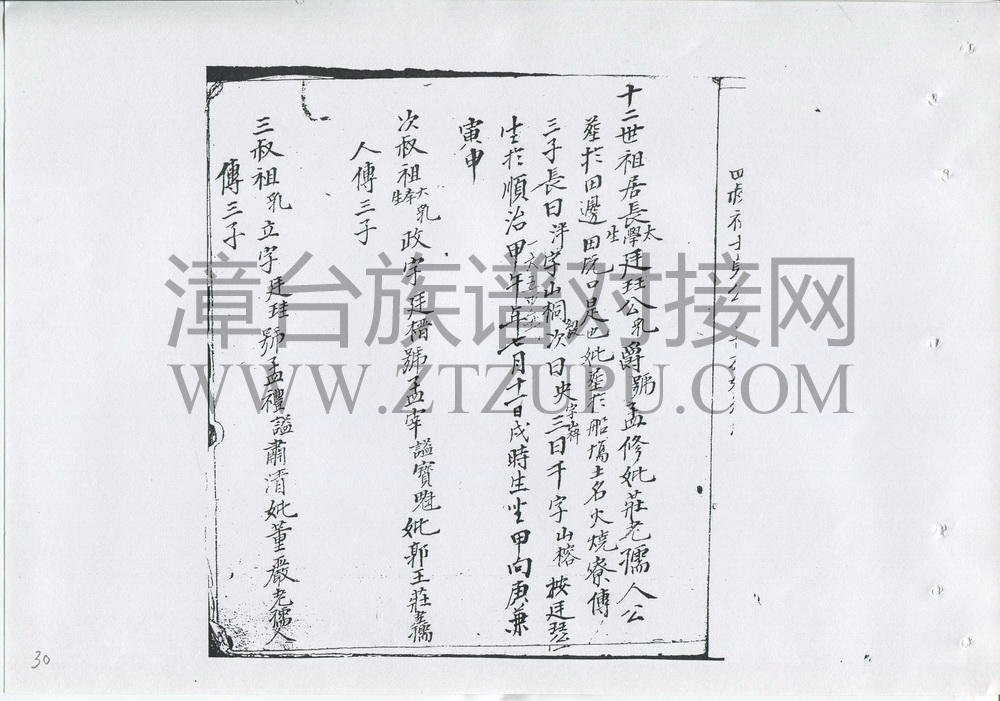 十二世祖居長太學生廷琹公乳爵號孟修妣莊老孺人公
葬於田邊田坑口是也妣葬於船塢土名火燒寮傳
三子長曰洋字山桐次曰央字山三曰千字山榕按廷
生於順治甲午年七月十一日戌時生坐甲向庚兼
寅申
次叔祖太學生乳政字廷榗號孟宰謚寶妣郭王莊孺
人傳三子
三叔祖乳立字廷珪號孟禮謚肅清妣董嚴老孺人
傳三子
漳台族谱对接网
WWW.ZTZUPU.COM
30